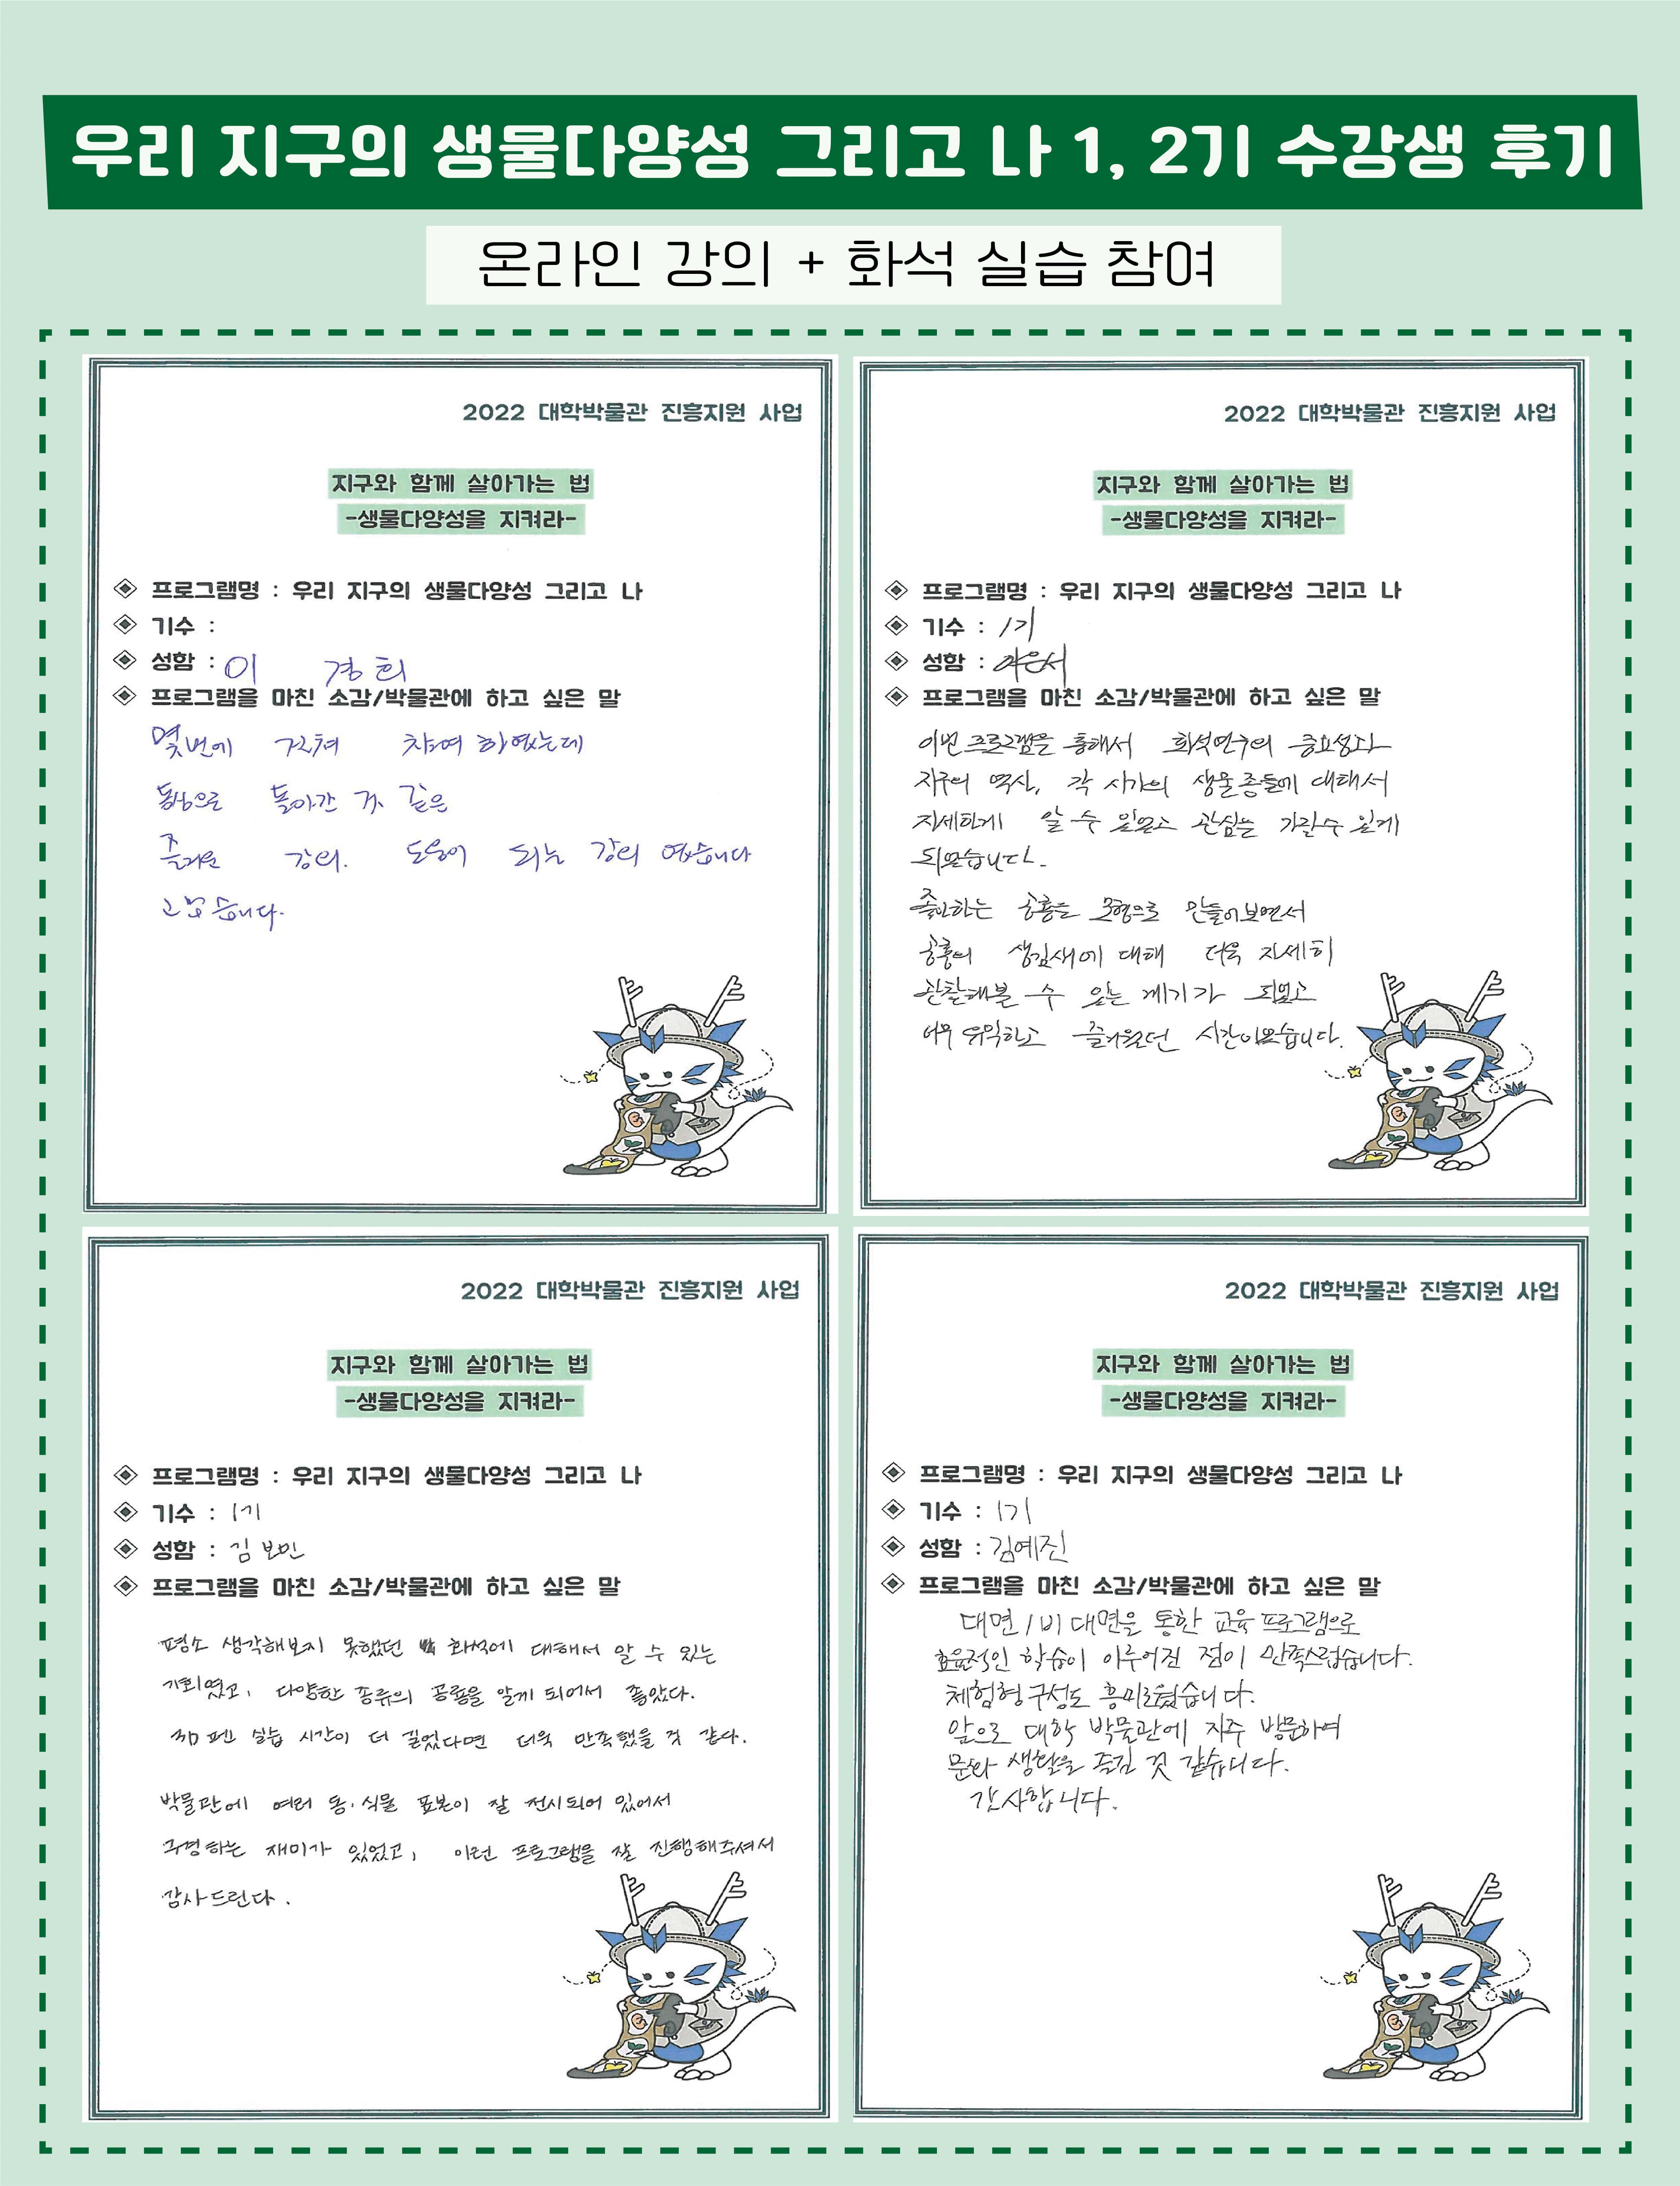 우리 지구의 생물다양성 그리고 나 1, 2기 수강생 후기
온라인 강의 + 화석 실습 참여
2022 대학박물관 진흥지원 사업
지구와 함께 살아가는 법
-생물다양성을 지켜라-
프로그램명 : 우리 지구의 생물다양성 그리고 나
기수 :
성함 : 이 경희
프로그램을 마친 소감/박물관에 하고 싶은 말
몇번에 거쳐 참여 하였는데
동심으로 돌아간 것 같은
즐거운 강의. 도움이 되는 강의 였습니다
고맙습니다.
2022 대학박물관 진흥지원 사업
지구와 함께 살아가는 법
-생물다양성을 지켜라-
프로그램명 : 우리 지구의 생물다양성 그리고 나
기수 : 1기
성함 :
프로그램을 마친 소감/박물관에 하고 싶은 말
이번 프로그램을 통해서 화석연구의 중요성과
지구의 역사, 각 시기의 생물종들에 대해서
자세하게 알 수 있었고 관심을 가질수 있게
되었습니다.
좋아하는 공룡을 모형으로 만들어보면서
공룡의 생김새에 대해 더욱 자세히
관찰해볼 수 있는 계기가 되었고
너무 유익하고 즐거웠던 시간이었습니다.
2022 대학박물관 진흥지원 사업
지구와 함께 살아가는 법
-생물다양성을 지켜라-
프로그램명 : 우리 지구의 생물다양성 그리고 나
기수 : 1기
성함 : 김보민
프로그램을 마친 소감/박물관에 하고 싶은 말
평소 생각해보지 못했던 화석에 대해서 알 수 있는
기회였고, 다양한 종류의 공룡을 알게 되어서 좋았다.
3D 펜 실습 시간이 더 길었다면 더욱 만족했을 것 같다.
박물관에 여러 동·식물 표본이 잘 전시되어 있어서
구경하는 재미가 있었고, 이런 프로그램을 잘 진행해주셔서
감사드린다.
2022 대학박물관 진흥지원 사업
지구와 함께 살아가는 법
-생물다양성을 지켜라-
프로그램명 : 우리 지구의 생물다양성 그리고 나
기수 : 1기
성함 : 김예진
프로그램을 마친 소감/박물관에 하고 싶은 말
대면/비대면을 통한 교육 프로그램으로
효율적인 학습이 이루어진 점이 만족스럽습니다.
체험형 구성도 흥미로웠습니다.
앞으로 대학 박물관에 자주 방문하여
문화 생활을 즐길 것 같습니다.
감사합니다.